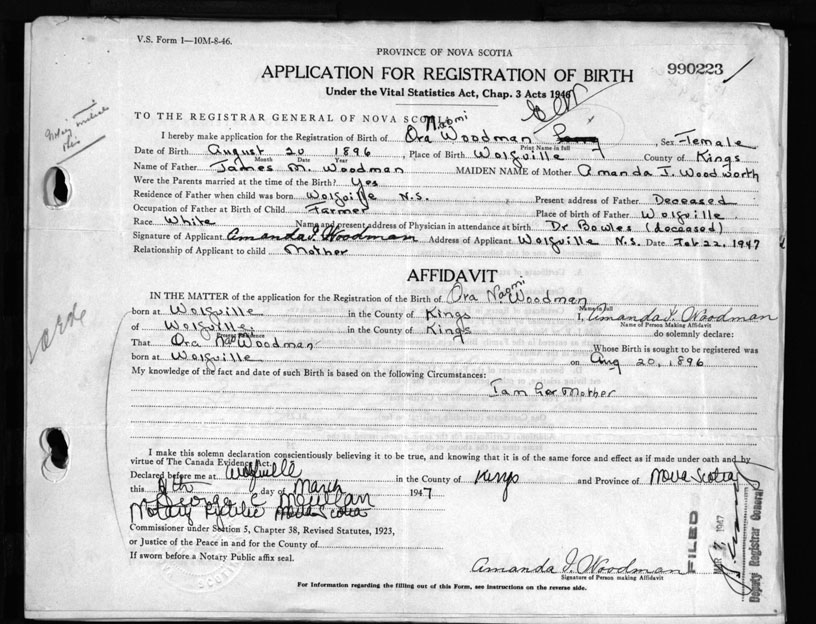 V.S. Form 1—10M-8-46.
PROVINCE OF NOVA SCOTIA
APPLICATION FOR REGISTRATION OF BIRTH
990223
Under the Vital Statistics Act, Chap. 3 Acts 1946
TO THE REGISTRAR GENERAL OF NOVA SCOTIA
Naomi
I hereby make application for the Registration of Birth of Ora Woodman, Sex Female
Print Name in full
Date of Birth August 20 1896, Place of Birth Wolfville County of Kings
Month Date Year
Name of Father James M. Woodman MAIDEN NAME of Mother Amanda I. Woodworth
Were the Parents married at the time of the Birth? Yes
Residence of Father when child was born Wolfville N.S. Present address of Father Deceased
Occupation of Father at Birth of Child Farmer Place of birth of Father Wolfville
Race White Name and present address of Physician in attendance at birth Dr Bowles (deceased)
Signature of Applicant Amanda I. Woodman Address of Applicant Wolfville N.S. Date Feb 22, 1947
Relationship of Applicant to child Mother
AFFIDAVIT
IN THE MATTER of the application for the Registration of the Birth of Ora Naomi Woodman
Name in full
born at Wolfville in the County of Kings I, Amanda I. Woodman
Name of Person Making Affidavit
of Wolfville in the County of Kings do solemnly declare:
That Ora N. Woodman Whose Birth is sought to be registered was
born at Wolfville on Aug 20, 1896
My knowledge of the fact and date of such Birth is based on the following Circumstances:
I am her Mother
I make this solemn declaration conscientiously believing it to be true, and knowing that it is of the same force and effect as if made under oath and by
virtue of The Canada Evidence Act.
Declared before me at Wolfville in the County of Kings and Province of Nova Scotia
this day of March 1947
George C
Notary Public Nova Scotia
Commissioner under Section 5, Chapter 38, Revised Statutes, 1923,
or Justice of the Peace in and for the County of
If sworn before a Notary Public affix seal.
Amanda I. Woodman
Signature of Person making Affidavit
For Information regarding the filling out of this Form, see instructions on the reverse side.
FILED
1947
Deputy Registrar General